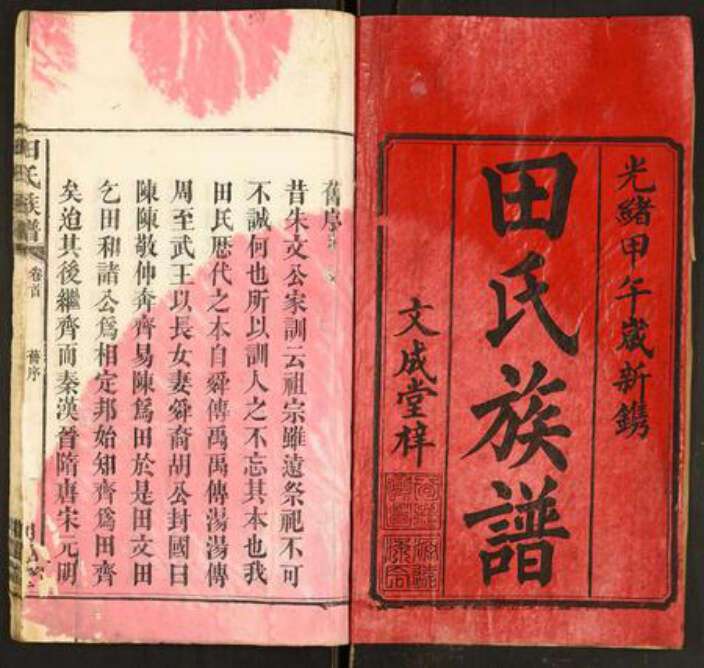 光緒甲午歲新鐫
田氏族譜
文成堂梓
舊序
昔朱文公家訓云祖宗雖遠祭祀不可
不誠何也所以訓人之不忘其本也我
田氏歷代之本自舜傳禹禹傳湯湯傳
周至武王以長女妻舜裔胡公封國曰
陳陳敬仲奔齊易陳爲田於是田文田
乞田和諸公爲相定邦始知齊爲田齊
矣迨其後繼齊而秦漢晉隋唐宋元明
田氏族譜
卷首
舊序